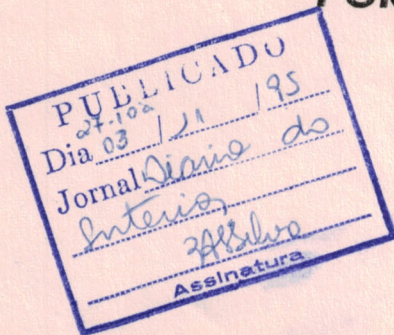 PUBLICADO
27.10 a
Dia 03 / 11 / 95
Jornal Diario do
Interior
Assinatura